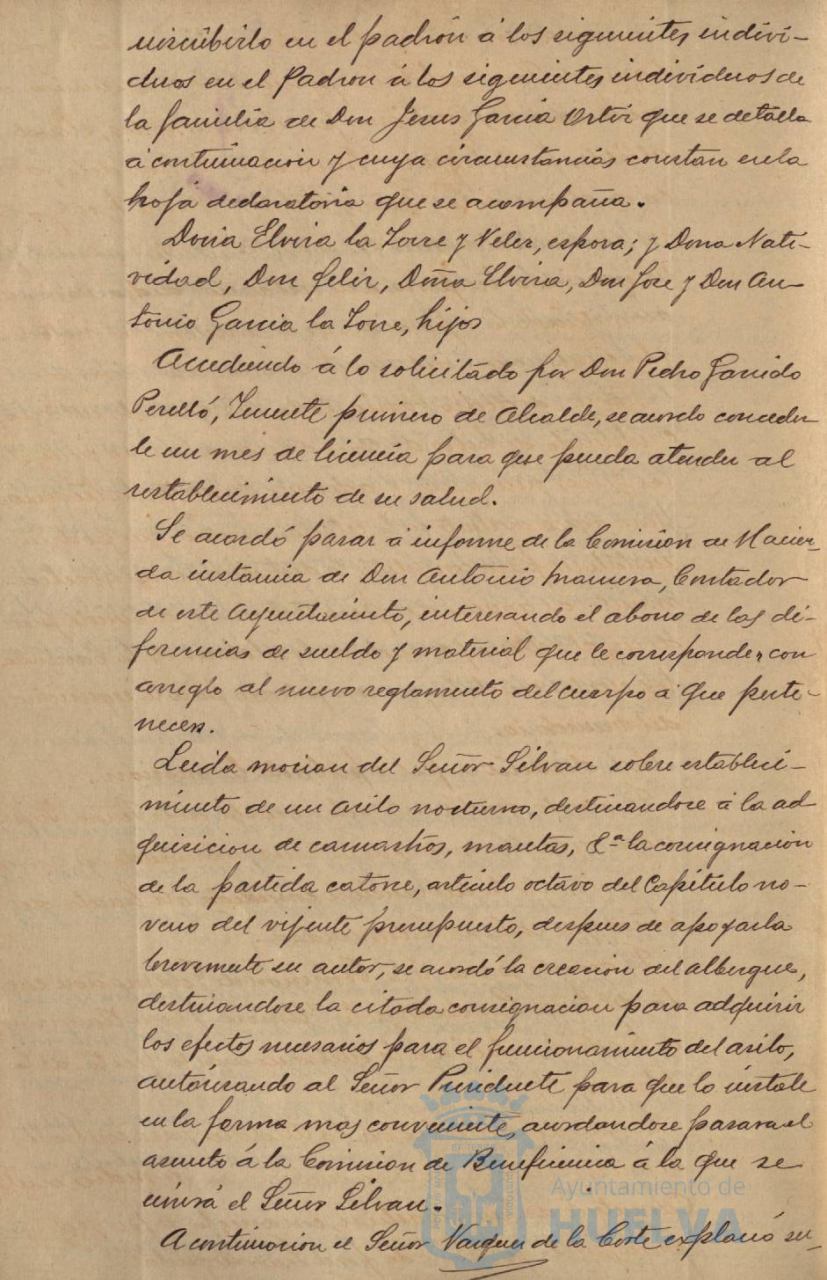 inscribirlo en el padrón á los siguientes indivi-
duos en el Padron á los siguientes individuos de
la familia de Don Jesus Garcia Ortiz que se detalla
á continuacion y cuya circunstancias constan en la
hoja declaratoria que se acompaña.
Doña Elvira la Torre y Velez, esposa; y Dona Nati-
vidad, Don Felix, Doña Elvira, Don Jose y Don An-
tonio Garcia la Torre, hijos
Accediendo á lo solicitado por Don Pedro Garrido
Perelló, Teniente primero de Alcalde, se acordo conceder
le un mes de licencia para que pueda atender al
restablecimiento de su salud.
Se acordó pasar á informe de la Comision de Hacien-
da instancia de Don Antonio Mamera, Contador
de este Ayuntamiento, interesando el abono de las di-
ferencias de sueldo y material que le corresponde, con
arreglo al nuevo reglamento del cuerpo á que perte-
necen.
Leida mocion del Señor Silvan sobre estableci-
miento de un asilo nocturno, destinandose á la ad
quisicion de camastros, mantas, &ª la consignación
de la partida catorce, artículo octavo del Capítulo no-
veno del vijente presupuesto, despues de apoyarla
brevemente su autor, se acordó la creacion del albergue,
destinandose la citada consignacion para adquirir
los efectos necesarios para el funcionamiento del asilo,
autorizando al Señor Presidente para que lo instale
en la forma mas conveniente, acordandose pasara el
asunto á la Comision de Beneficencia á la que se
unirá el Señor Silvan.
A continuacion el Señor Vazquez de la Corte explanó su
Ayuntamiento de
HUELVA